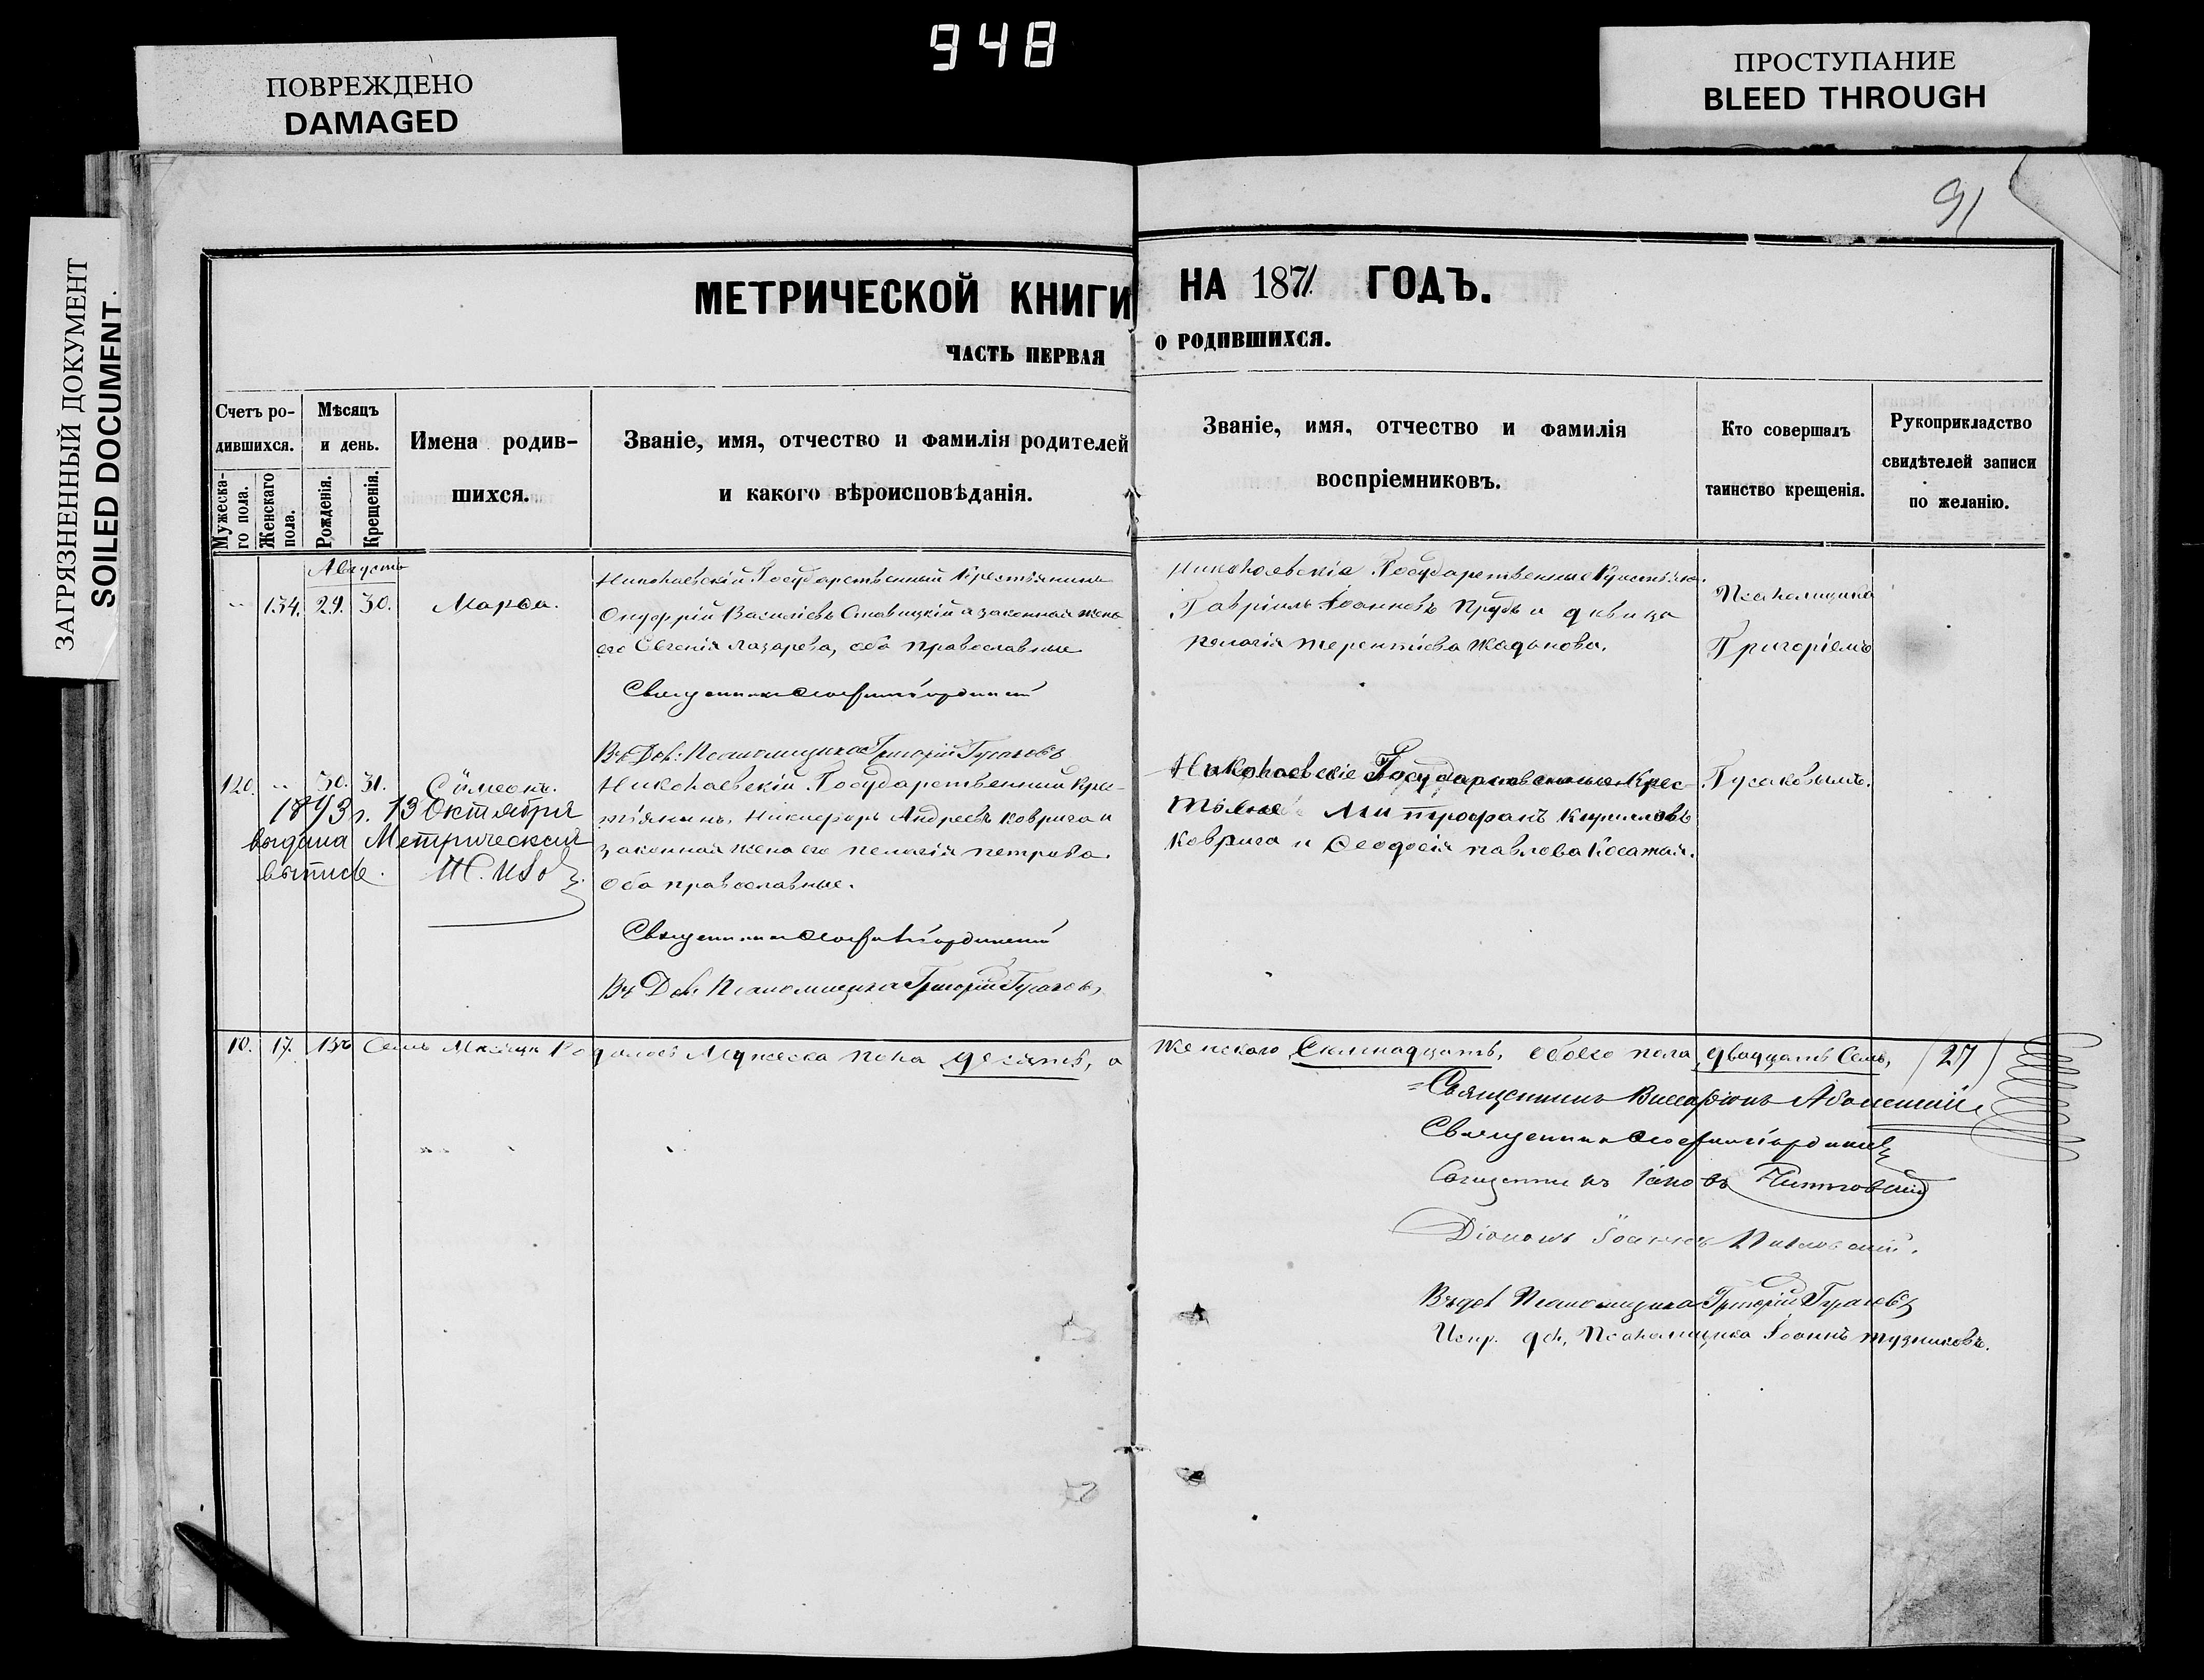 948
ПОВРЕЖДЕНО
DAMAGED
ПРОСТУПАНИЕ
BLEED THROUGH
ЗАГРЯЗНЕННЫЙ ДОКУМЕНТ
SOILED DOCUMENT
91
МЕТРИЧЕСКОЙ КНИГИ НА 1871 ГОДЪ.
ЧАСТЬ ПЕРВАЯ О РОДИВШИХСЯ.
Счетъ ро-
дившихся.
Мужеска-
го пола.
Женскаго
пола.
Мѣсяцъ
и день.
Рожденія.
Крещенія.
Имена родив-
шихся.
Званіе, имя, отчество и фамилія родителей
и какого вѣроисповѣданія.
Званіе, имя, отчество и фамилія
воспріемниковъ.
Кто совершалъ
таинство крещенія.
Рукоприкладство
свидѣтелей записи
по желанію.
Августъ
134. 29. 30. Марѳа.
Николаевскій Государственный Крестьянинъ
Онуфрій Василіевъ а законная жена
его Евгенія Лазарева, оба православные
Священникъ
Въ Дол: Псаломщика Григорій Гусаковъ
Николаевскіе Государственные Крестьяне
Гавріилъ Іоанновъ Прудь и дѣвица
Пелагія Терентіева
Псаломщикъ
Григоріемъ
120. 30. 31. Сѵмеонъ.
1893 г. 13 Октября
выдана Метрическая
выпись.
Николаевскій Государственный Кре-
стьянинъ Никифоръ Андреевъ Коврига и
законная жена его Пелагія Петрова.
Оба православные.
Священникъ
Въ Дол. Псаломщика Григорій Гусаковъ
Николаевскіе Государственные Крес-
тьяне Митрофанъ Кирилловъ
Коврига и Ѳеодосія Павлова
Гусаковымъ.
10. 17. Семъ Мѣсяцѣ Родилось Мужеска пола десять, а
женскаго Семнадцать, обоего пола двадцать Семь, (27)
Священникъ Виссаріонъ
Священникъ
Священникъ Іаковъ
Діаконъ Іоаннъ
Въ дол Псаломщика Григорій Гусаковъ
Испр. дол. Псаломщика Іоаннъ